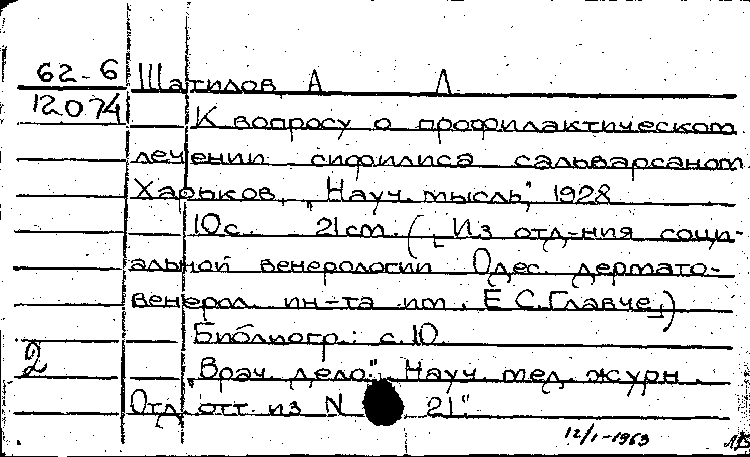 62-6 Шатилов, А. Л.
12074 К вопросу о профилактическом
лечении сифилиса сальварсаном.
Харьков, "Науч. мысль", 1928
10 с. 21 см. ([Из отд-ния соци-
альной венерологии Одес. дермато-
венерол. ин-та им. Е.С.Главче])
Библиогр.: с. 10.
2 "Врач. дело". Науч. мед. журн.
Отд. отт. из N 21."
12/I-1963